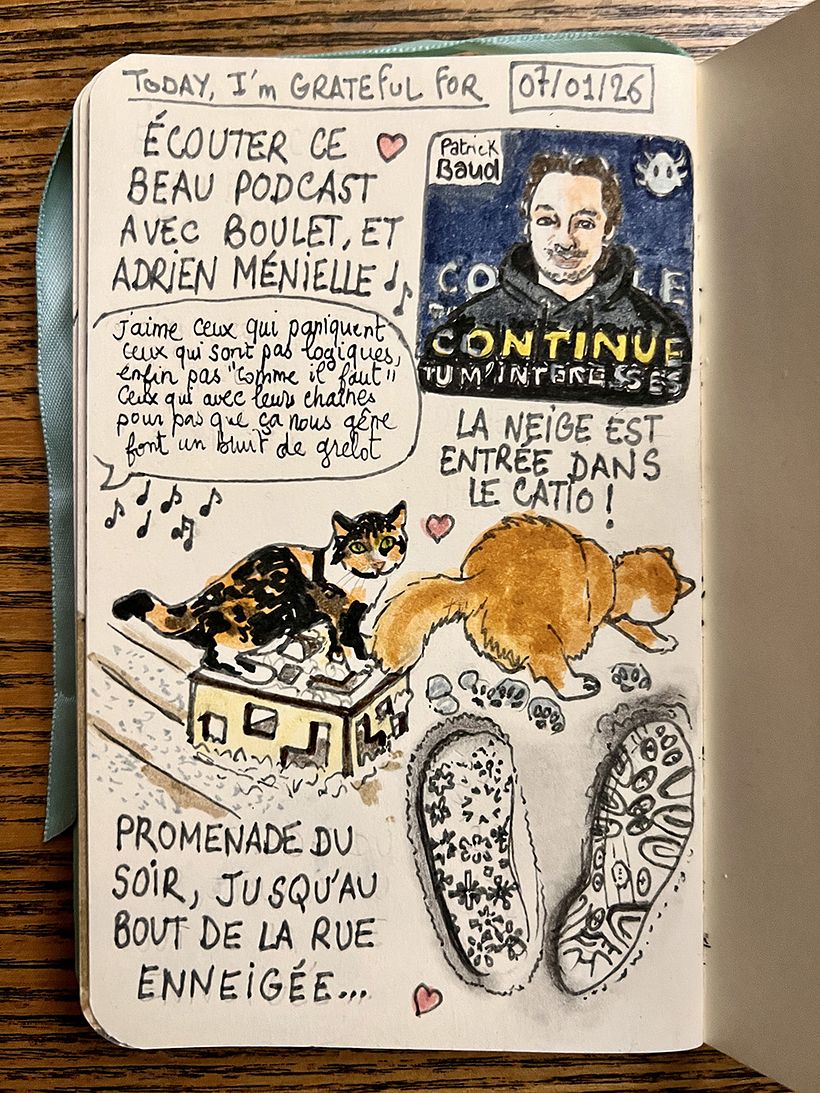 TODAY, I'm GRATEFUL FOR
07/01/26
ÉCOUTER CE
BEAU PODCAST
AVEC BOULET, ET
ADRIEN MÉNIELLE
Patrick
Baud
CONTINUE
TU M'INTERESSES
j'aime ceux qui paniquent
ceux qui sont pas logiques,
enfin pas "comme il faut"
Ceux qui avec leurs chaînes
pour pas que ça nous gêne
font un bruit de grelot
LA NEIGE EST
ENTRÉE DANS
LE CATIO !
PROMENADE DU
SOIR, JUSQU'AU
BOUT DE LA RUE
ENNEIGÉE...